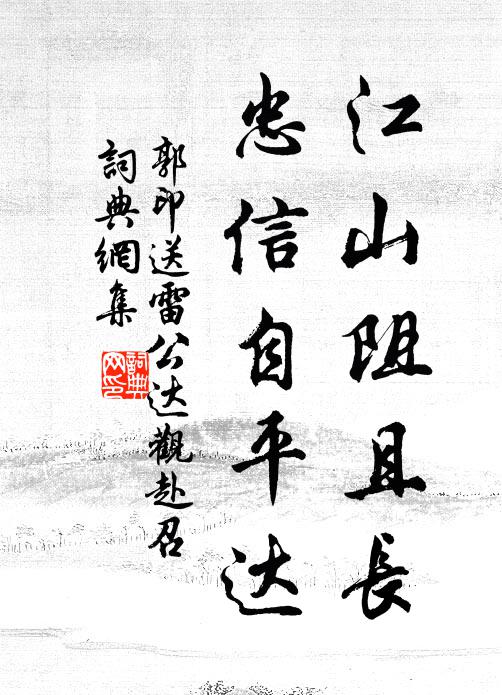 江山阻且長
忠信自平达
郭印送雷公达觀赴召
詞典網集
詞典网印